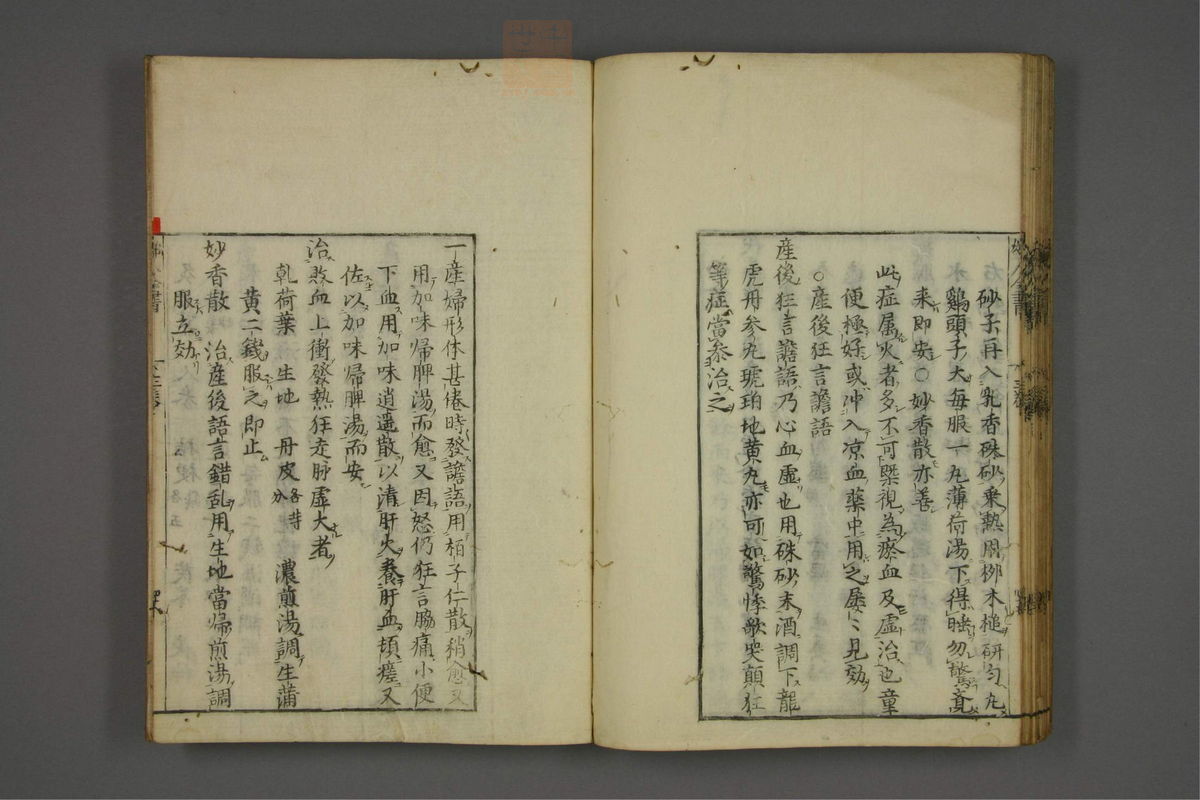 砂子再入乳香硃砂乗熱用柳木槌研匀丸
鷄頭子大毎服一丸薄荷湯下得睡勿驚
来即安○妙香散亦善
此症属火者多不可槩視為瘀血及虚治也童
便極好或冲入凉血藥中用之屡〻見効
○産後狂言譫語
産後狂言譫語乃心血虚也用硃砂末酒調下龍
虎丹参丸琥珀地黄丸亦可如驚悸歌哭顛狂
等症當叅治之
一産婦形体甚倦時發譫語用栢子仁散稍愈又
用加味帰脾湯而愈又因怒仍狂言脇痛小便
下血用加味逍遥散以清肝火養肝血頓瘥又
佐以加味帰脾湯而安
治敗血上衝發熱狂走脉虚大者
乹荷葉 生地 丹皮各等分 濃煎湯調生蒲
黄二錢服之即止
妙香散 治産後語言錯乱用生地當帰煎湯調
服立効